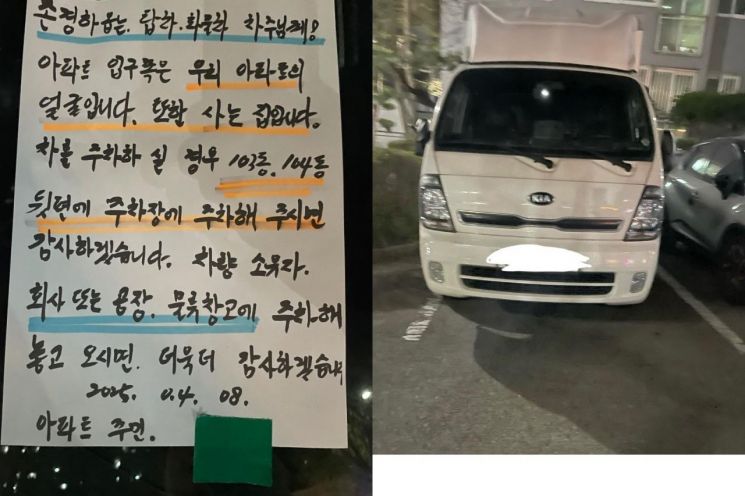 존경하옵는. 탑차. 화물차 차주님께!
아파트 입구쪽은 우리 아파트의
얼굴입니다. 또한 사는 집입니다.
차를 주차하실 경우 103동. 104동
뒷편에 주차장에 주차해 주시면
감사하겠습니다. 차량 소유자.
회사 또는 공장. 물류창고에 주차해
놓고 오시면. 더욱더 감사하겠습니다
2025. 04. 08.
아파트 주민.
KIA